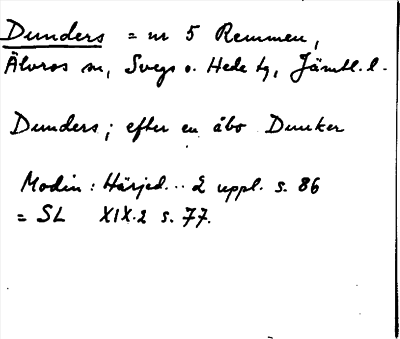 Dunders = nr 5 Remmen,
Älvros sn, Svegs o. Hede tg, Jämtl. l.
Dunders; efter en åbo Dunker
Modin: Härjed... 2 uppl. s. 86
= SL XIX.2 s. 77.